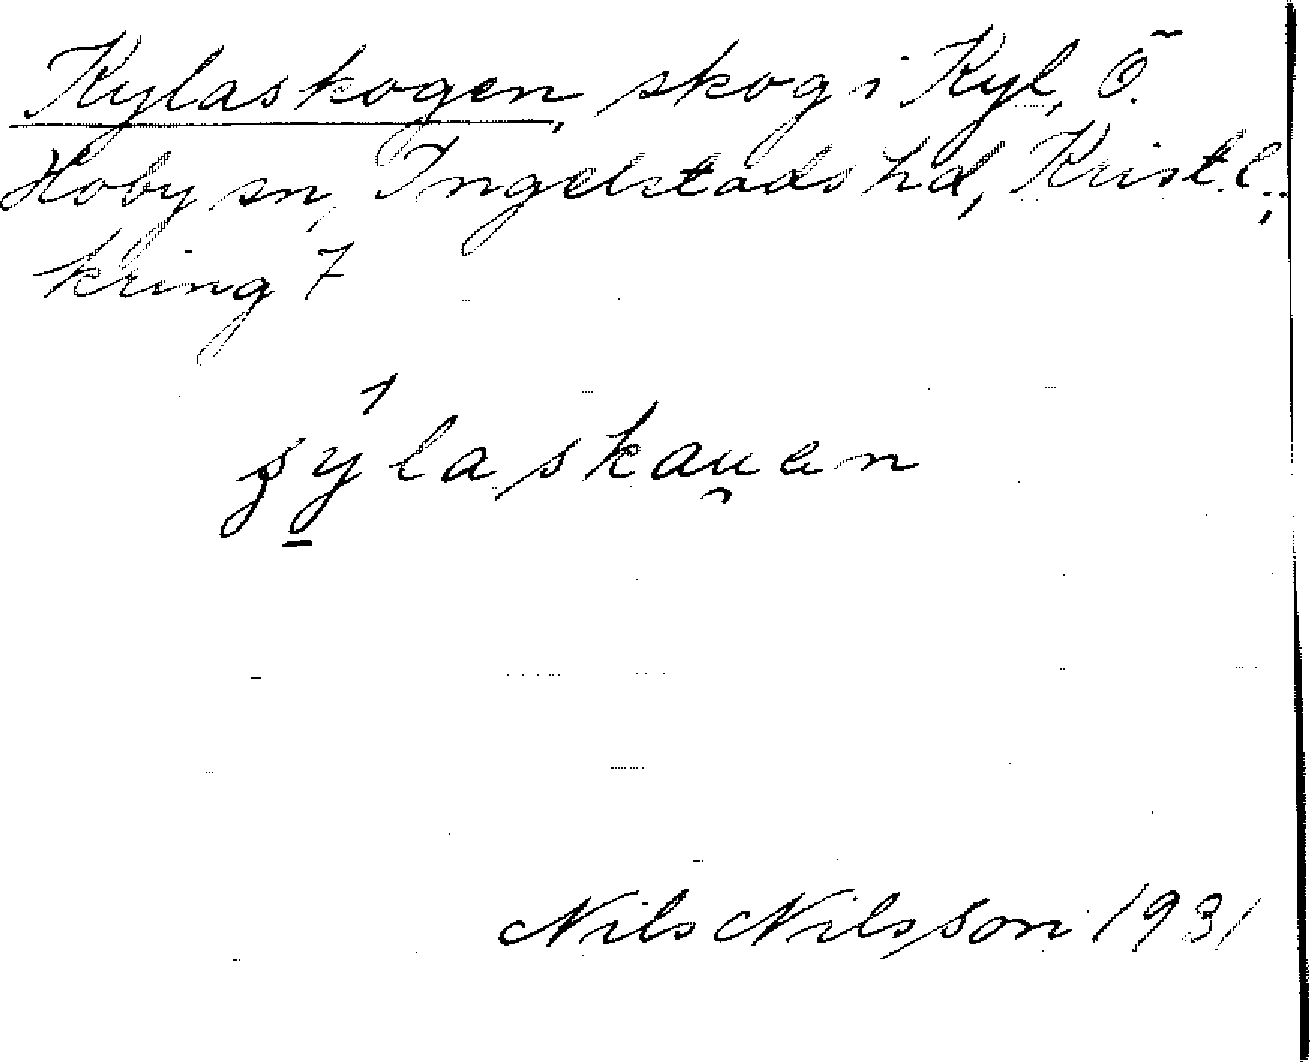 Kylaskogen, skog i Kyl, Ö.
Hoby sn, Ingelstads hd, Krist. l.;
kring 7
Nils Nilsson 1931